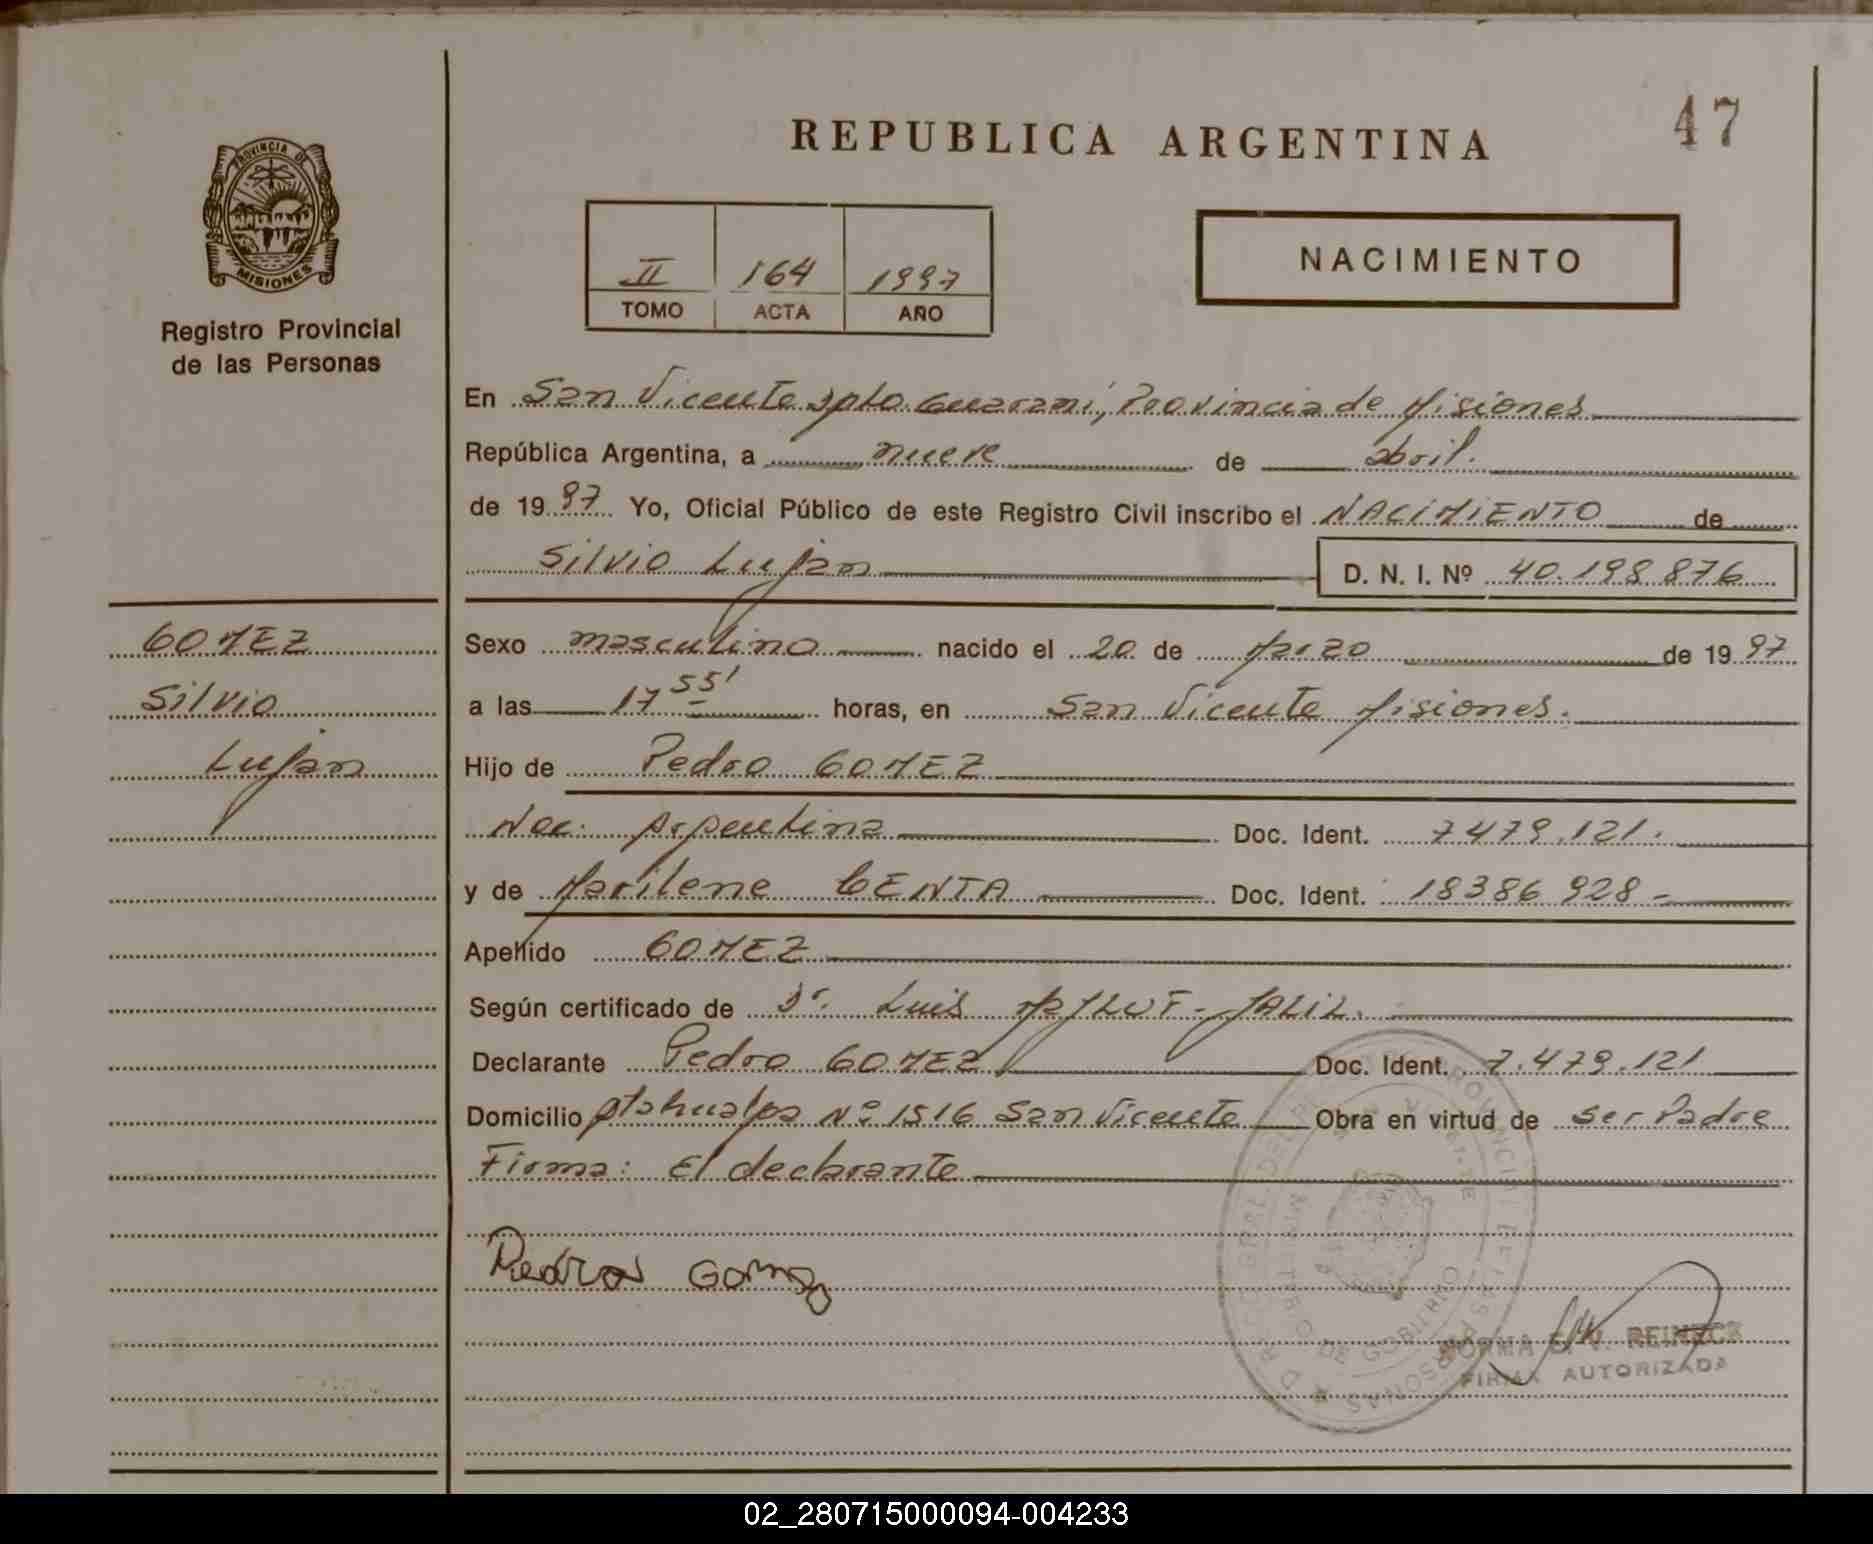 47
REPUBLICA ARGENTINA
PROVINCIA DE
MISIONES
Registro Provincial
de las Personas
II 164 1997
TOMO ACTA AÑO
NACIMIENTO
En San Vicente Dpto. Guarani, Provincia de Misiones
República Argentina, a nueve de abril.
de 1997 Yo, Oficial Público de este Registro Civil inscribo el NACIMIENTO de
Silvio Lujan D. N. I. Nº 40.198.876
GOMEZ
Silvio
Lujan
Sexo masculino nacido el 20 de Marzo de 1997
a las 17 55' horas, en San Vicente Misiones.
Hijo de Pedro GOMEZ
Nac. Argentina Doc. Ident. 7479.121.
y de Marilene CENTA Doc. Ident. 18386928
Apellido GOMEZ
Según certificado de Dr. Luis JALIL.
Declarante Pedro GOMEZ Doc. Ident. 7.479.121
Domicilio Atahualpa Nº 1516 San Vicente Obra en virtud de ser Padre
Firma: El declarante
Pedro Gomez
NORMA E. V. REINECK
FIRMA AUTORIZADA
02_280715000094-004233